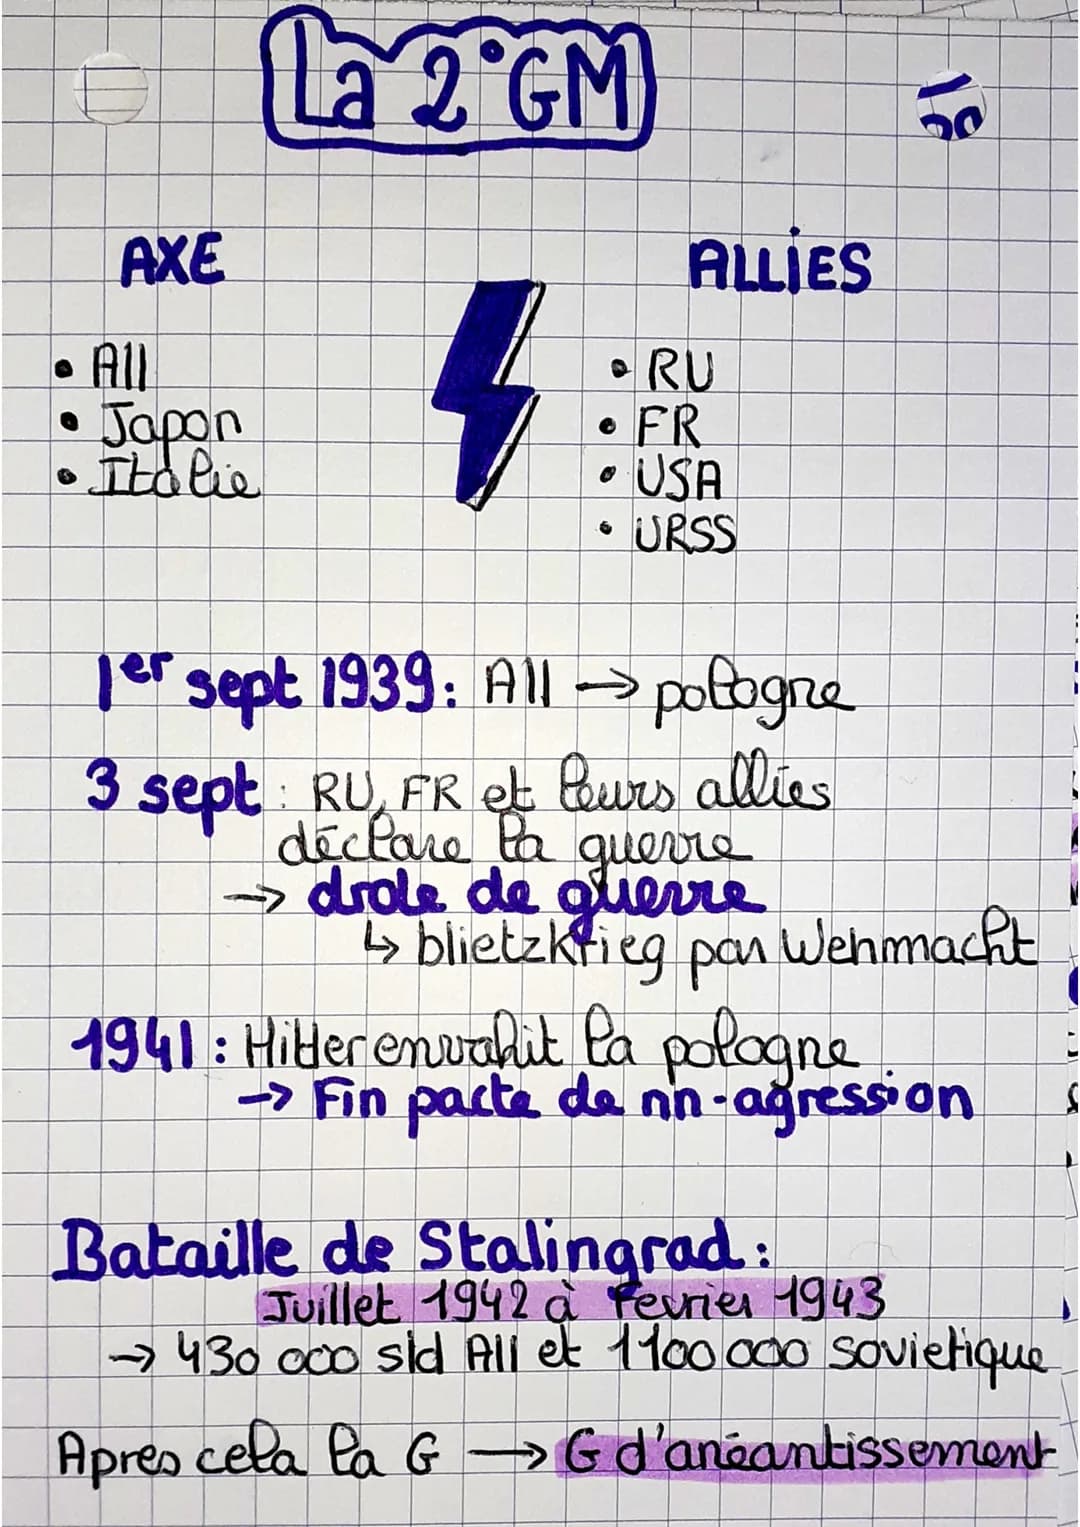 La 2°GM
AXE
ALLIES
• All
• Japon
• Italie
• RU
• FR
• USA
• URSS
1er sept 1939: All → pologne
3 sept : RU, FR et leurs alliés
déclare la guerre
→ drole de guerre
↳ blietzkrieg par Wehrmacht
1941 : Hitler envahit la pologne
→ Fin pacte de nn-agression
Bataille de Stalingrad :
Juillet 1942 à Fevrier 1943
→ 430 000 sld All et 1100 000 sovietique
Apres cela la G → G d'anéantissement